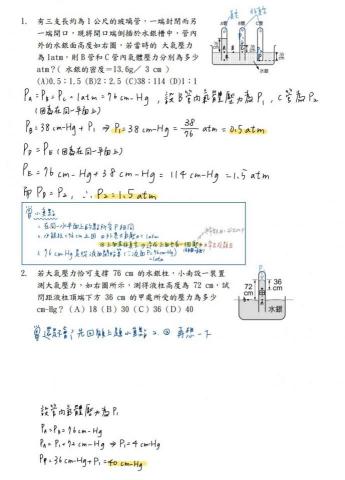 1. 有三支長均為1公尺的玻璃管,一端封閉而另
一端開口,現將開口端倒插於水銀槽中,管內
外的水銀面高度如右圖,若當時的 大氣壓力
為1atm,則B管和C管內氣體壓力分別為多少
atm?( 水銀的密度=13.6g/ 3 cm )
(A)0.5:1.5 (B)2:2.5 (C)38:114 (D)1:1
水銀
PA=PB=PC=1atm=76cm-Hg,設B管內氣體壓力為P1,C管為P2
(因為在同一平面上)
PB=38cm-Hg+P1 ⇒ P1=38cm-Hg=38/76 atm=0.5atm
PD=PE(因為在同一平面上)
PE=76cm-Hg+38cm-Hg=114cm-Hg=1.5atm
而PD=P2,∴P2=1.5atm
2. 若大氣壓力恰可支撐 76 cm 的水銀柱,小南設一裝置
測大氣壓力,如右圖所示,測得液柱高度為 72 cm,試
問距液柱頂端下方 36 cm 的甲處所受的壓力為多少
cm-Hg? (A) 18 (B) 30 (C) 36 (D) 40
72
cm
36
cm
水銀
設管內氣體壓力為P1
PA=PB=76cm-Hg
PA=P1+72cm-Hg ⇒ P1=4cm-Hg
P甲=36cm-Hg+P1=40cm-Hg